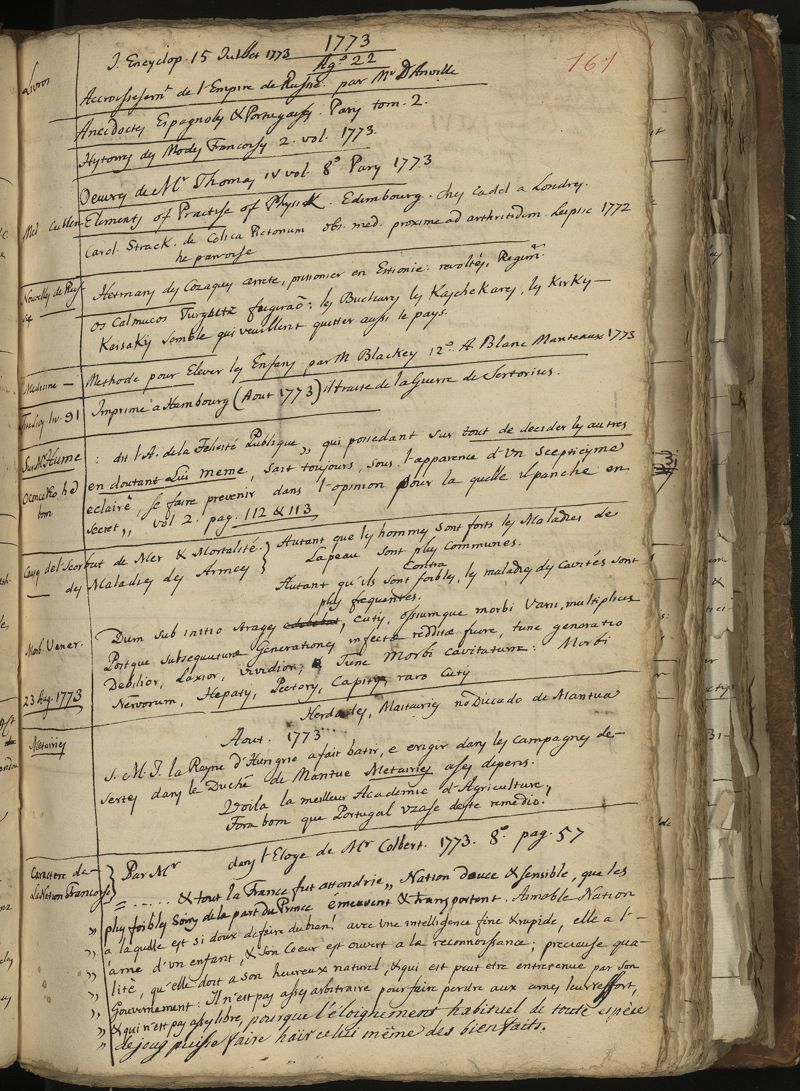 1773
J. Encyclop. 15 Juillet 1773
Ag.º 22
161
Livros
Accroissem.t de l'Empire de Russie. par Mr D'Anville
Anecdotes Espagnoles & Portugaises. Pary tom. 2.
Hytoires des Modes Francoises 2. vol. 1773.
Oeuvres de Mr Thomas IV vol 8º Pary 1773
Med Cullen Elements of Practise of Physick. Edimbourg. chez Cadel a Londres.
Carol. Strack. de Colica Pictorum obs. med. proxime ad arthritidem. Lepsic 1772
he parvoise
Nouvelles de Russie
Hetmans des Cozaques arrete, prisonier en Estonie: revoltés,
os Calmucos fugiraõ: les Buchars les Kaschekares, les Kirky-
Kaisaky semble qui veuillent quitter aussi le pays.
Medicine - Methode pour Elever les Enfans par M Blackey 12º A. Blanc Manteaux 1773
Imprimé a Hambourg (Aout 1773) il traite de la Guerre de Sertorius.
Sur Mr Hume : dit l'A. de la Felicité Publique ,, qui possedant sur tout de decider les autres
en doutant Lui meme, sait toujours, sous l'apparence d'un Scepticisme
eclairé, se faire prevenir dans l'opinion pour la quelle il panche en
secret ,, vol 2. pag. 112 & 113
Causes del Scorbut de Mer & Mortalité.
des Maladies des Armees
Autant que les hommes sont forts les Maladies de
La peau sont plus communes.
Contra
Autant qu'ils sont foibles, les maladies des cavités sont
plus frequentes.
Morb. Vener.
Dum sub initio strages, cutis, ossiumque morbi varii, multiplices
Postque subsequuturae Generationes infectae redditae fuere, tunc generatio
Debilior, Laxior, vividior, & Tunc Morbi cavitatum: Morbi
Nervorum, Hepatis, Pectoris, Capitis, raro Cutis
23 Aug. 1773
Herdades, Mastairies no Diccado de Mantua
Metairies
Aout. 1773
S. M. J. la Rayne d'Hungrie a fait batir, e erigir dans les campagnes de-
sertes dans le Duché de Mantue Metairies a ses depens.
Voila la meilleur Academie d'Agriculture,
Fora bom que Portugal uzase deste remedio!
Caractere de la Nation Francoise
Par Mr dans l'Eloge de Mr Colbert. 1773. 8º pag. 57
= ..... & tout la France fut attendrie ,, Nation douce & sensible, que les
,, plus foibles soins de la part du Prince émeuvent & transportent. Aimable Nation
,, a laquelle est si doux de faire du bien! avec une intelligence fine & rapide, elle a l'-
,, ame d'un enfant, & son Coeur est ouvert a la reconnoissance; precieuse qua-
,, lité, qu'elle doit a son heureux naturel, & qui est peut etre entretenue par son
,, Gouvernement: Il n'est pas assez arbitraire pour faire perdre aux ames leur ressort,
,, & qui n'est pas assez libre, pourque l'éloignement habituel de toute espèce
,, de joug puisse faire haïr celui même des bienfaits.